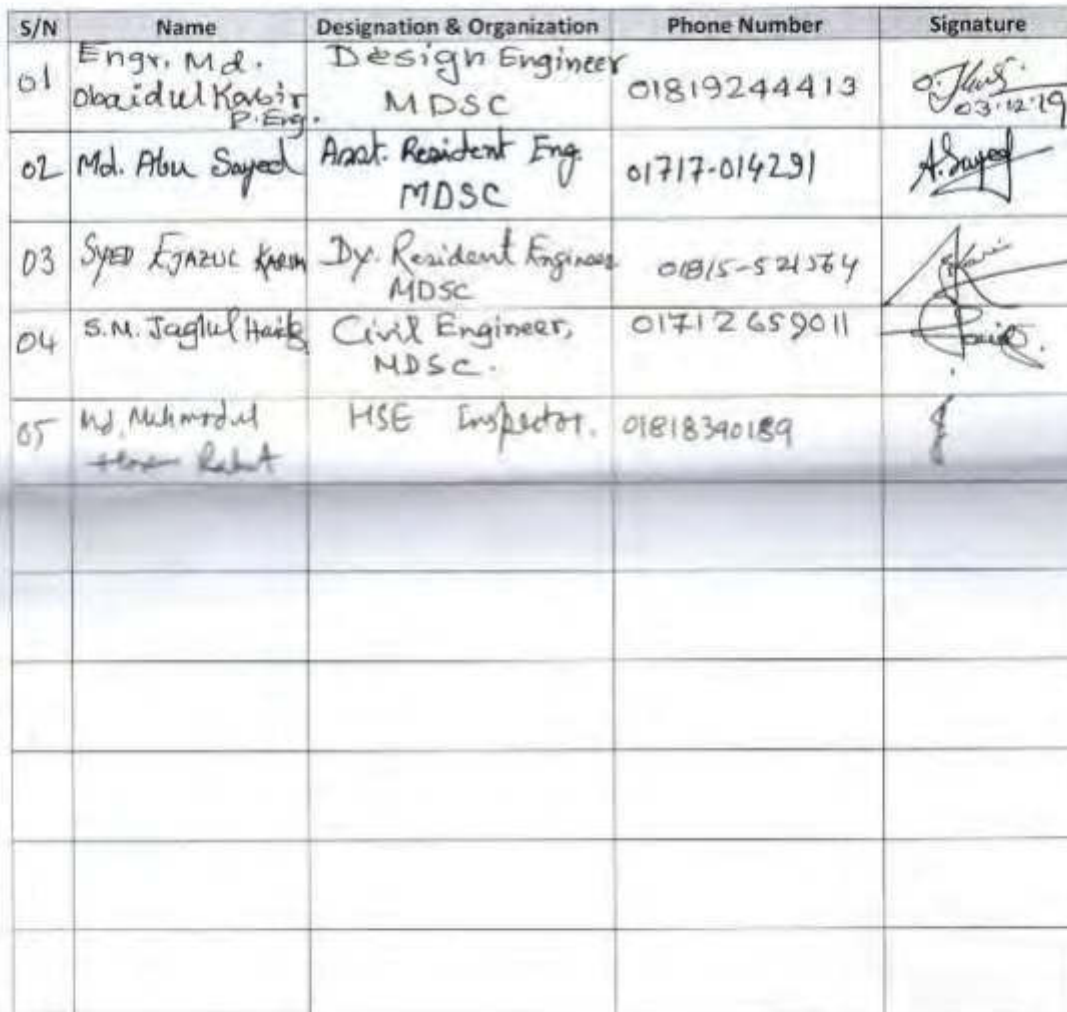 S/N Name Designation & Organization Phone Number Signature
01 Engr. Md. Obaidul Kabir P.Eng. Design Engineer MDSC 01819244413 03.12.19
02 Md. Abu Sayed Asst. Resident Eng. MDSC 01717-014291 A.Sayed
03 SYED EJAZUL KARIM Dy. Resident Engineer MDSC 01815-521564
04 S.M. Jaglul Civil Engineer, MDSC. 01712659011
05 Md. HSE Inspector. 01818390189